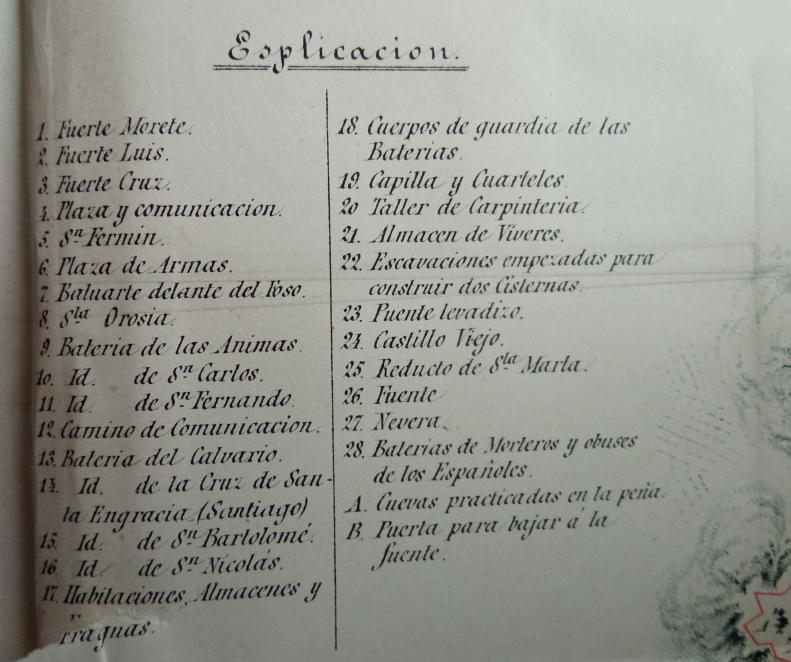 Esplicacion.
1. Fuerte Morete.
2. Fuerte Luis.
3. Fuerte Cruz.
4. Plaza y comunicacion.
5. Sn Fermin.
6. Plaza de Armas.
7. Baluarte delante del Foso.
8. Sta Orosia.
9. Bateria de las Animas.
10. Id. de Sn Carlos.
11. Id. de Sn Fernando.
12. Camino de Comunicacion.
13. Bateria del Calvario.
14. Id. de la Cruz de San-
ta Engracia (Santiago)
15. Id. de Sn Bartolomé.
16 Id. de Sn Nicolás.
17. Habitaciones, Almacenes y
Fraguas.
18. Cuerpos de guardia de las
Baterias.
19. Capilla y Cuarteles.
20 Taller de Carpinteria.
21. Almacen de Viveres.
22. Escavaciones empezadas para
construir dos Cisternas.
23. Puente levadizo.
24. Castillo Viejo.
25. Reducto de Sta Marta.
26. Fuente
27. Nevera.
28. Baterias de Morteros y obuses
de los Españoles.
A. Cuevas practicadas en la peña.
B. Puerta para bajar á la
fuente.